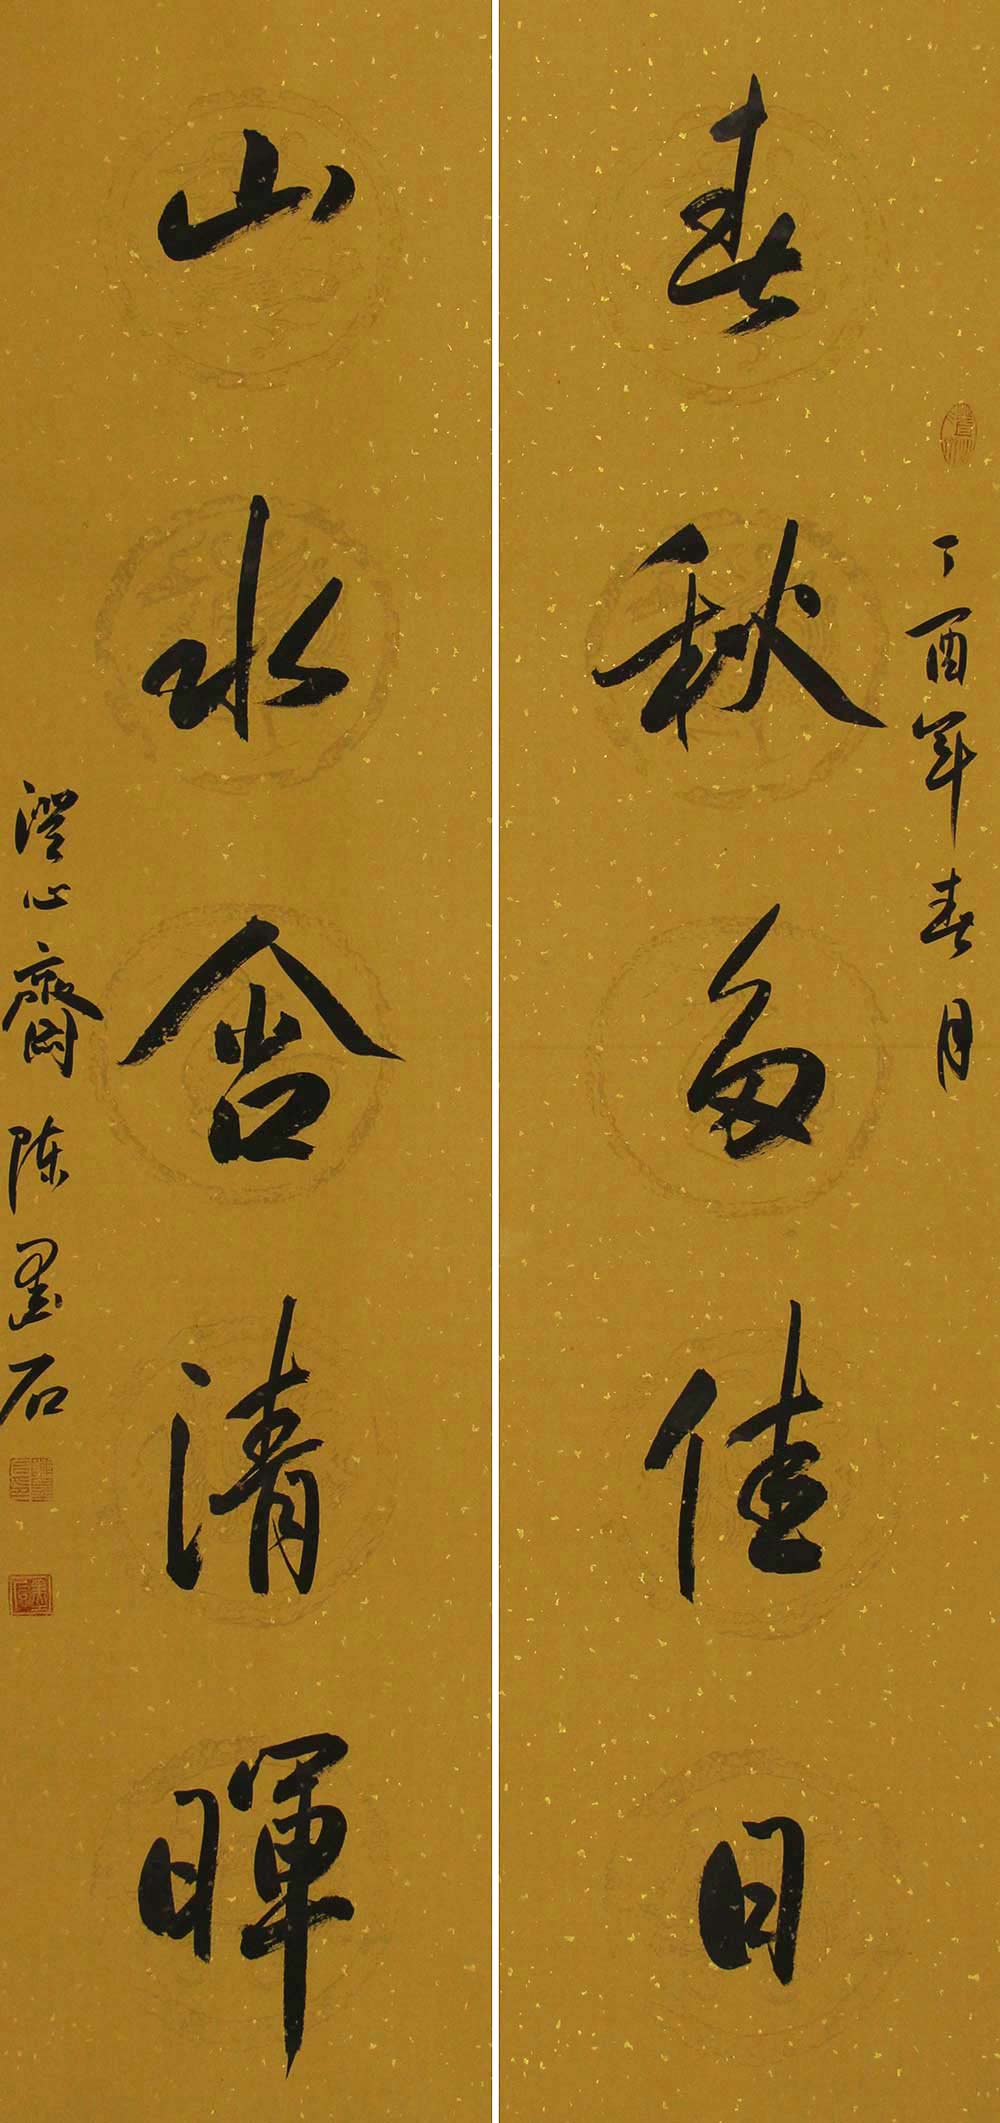 丁酉年春月
春秋多佳日
山水含清暉
澄心齋 陈墨石